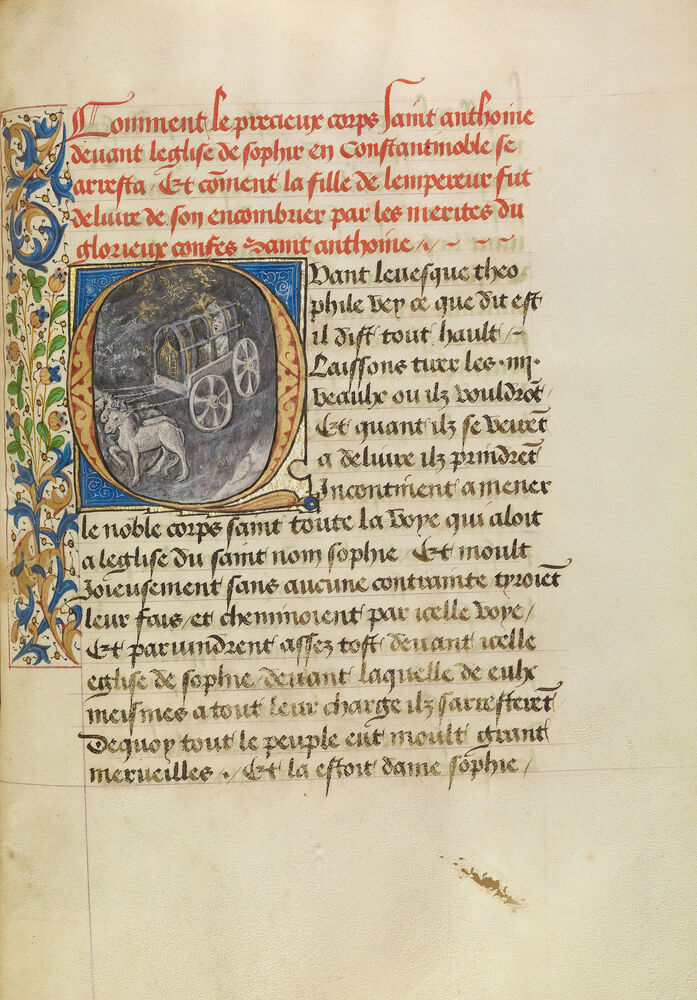 Comment le precieux corps saint anthoine
deuant leglise de sophie en Constantinoble se
arresta / Et cõment la fille de lempereur fut
deliure de son encombrier par les merites du
glorieux confes Saint anthoine /
Quant leuesque theo /
phile vey ce que dit est
il dist tout hault /
Laissons tirer les .iiii.
beaulx ou ilz vouldrõt
Et quant ilz se veirẽt
a deliure ilz prindrẽt
Incontinent a mener
le noble corps saint toute la voye qui aloit
a leglise du saint nom sophie / Et moult
Joieusement sans aucune contrainte tyroiẽt
leur fais / et cheminoient par icelle voye /
Et paruindrent assez tost deuant icelle
eglise de sophie / deuant laquelle de eulx
meismes a tout leur charge ilz sarresterẽt
Dequoy tout le peuple eut moult grant
merueilles . / Et la estoit dame sophie /